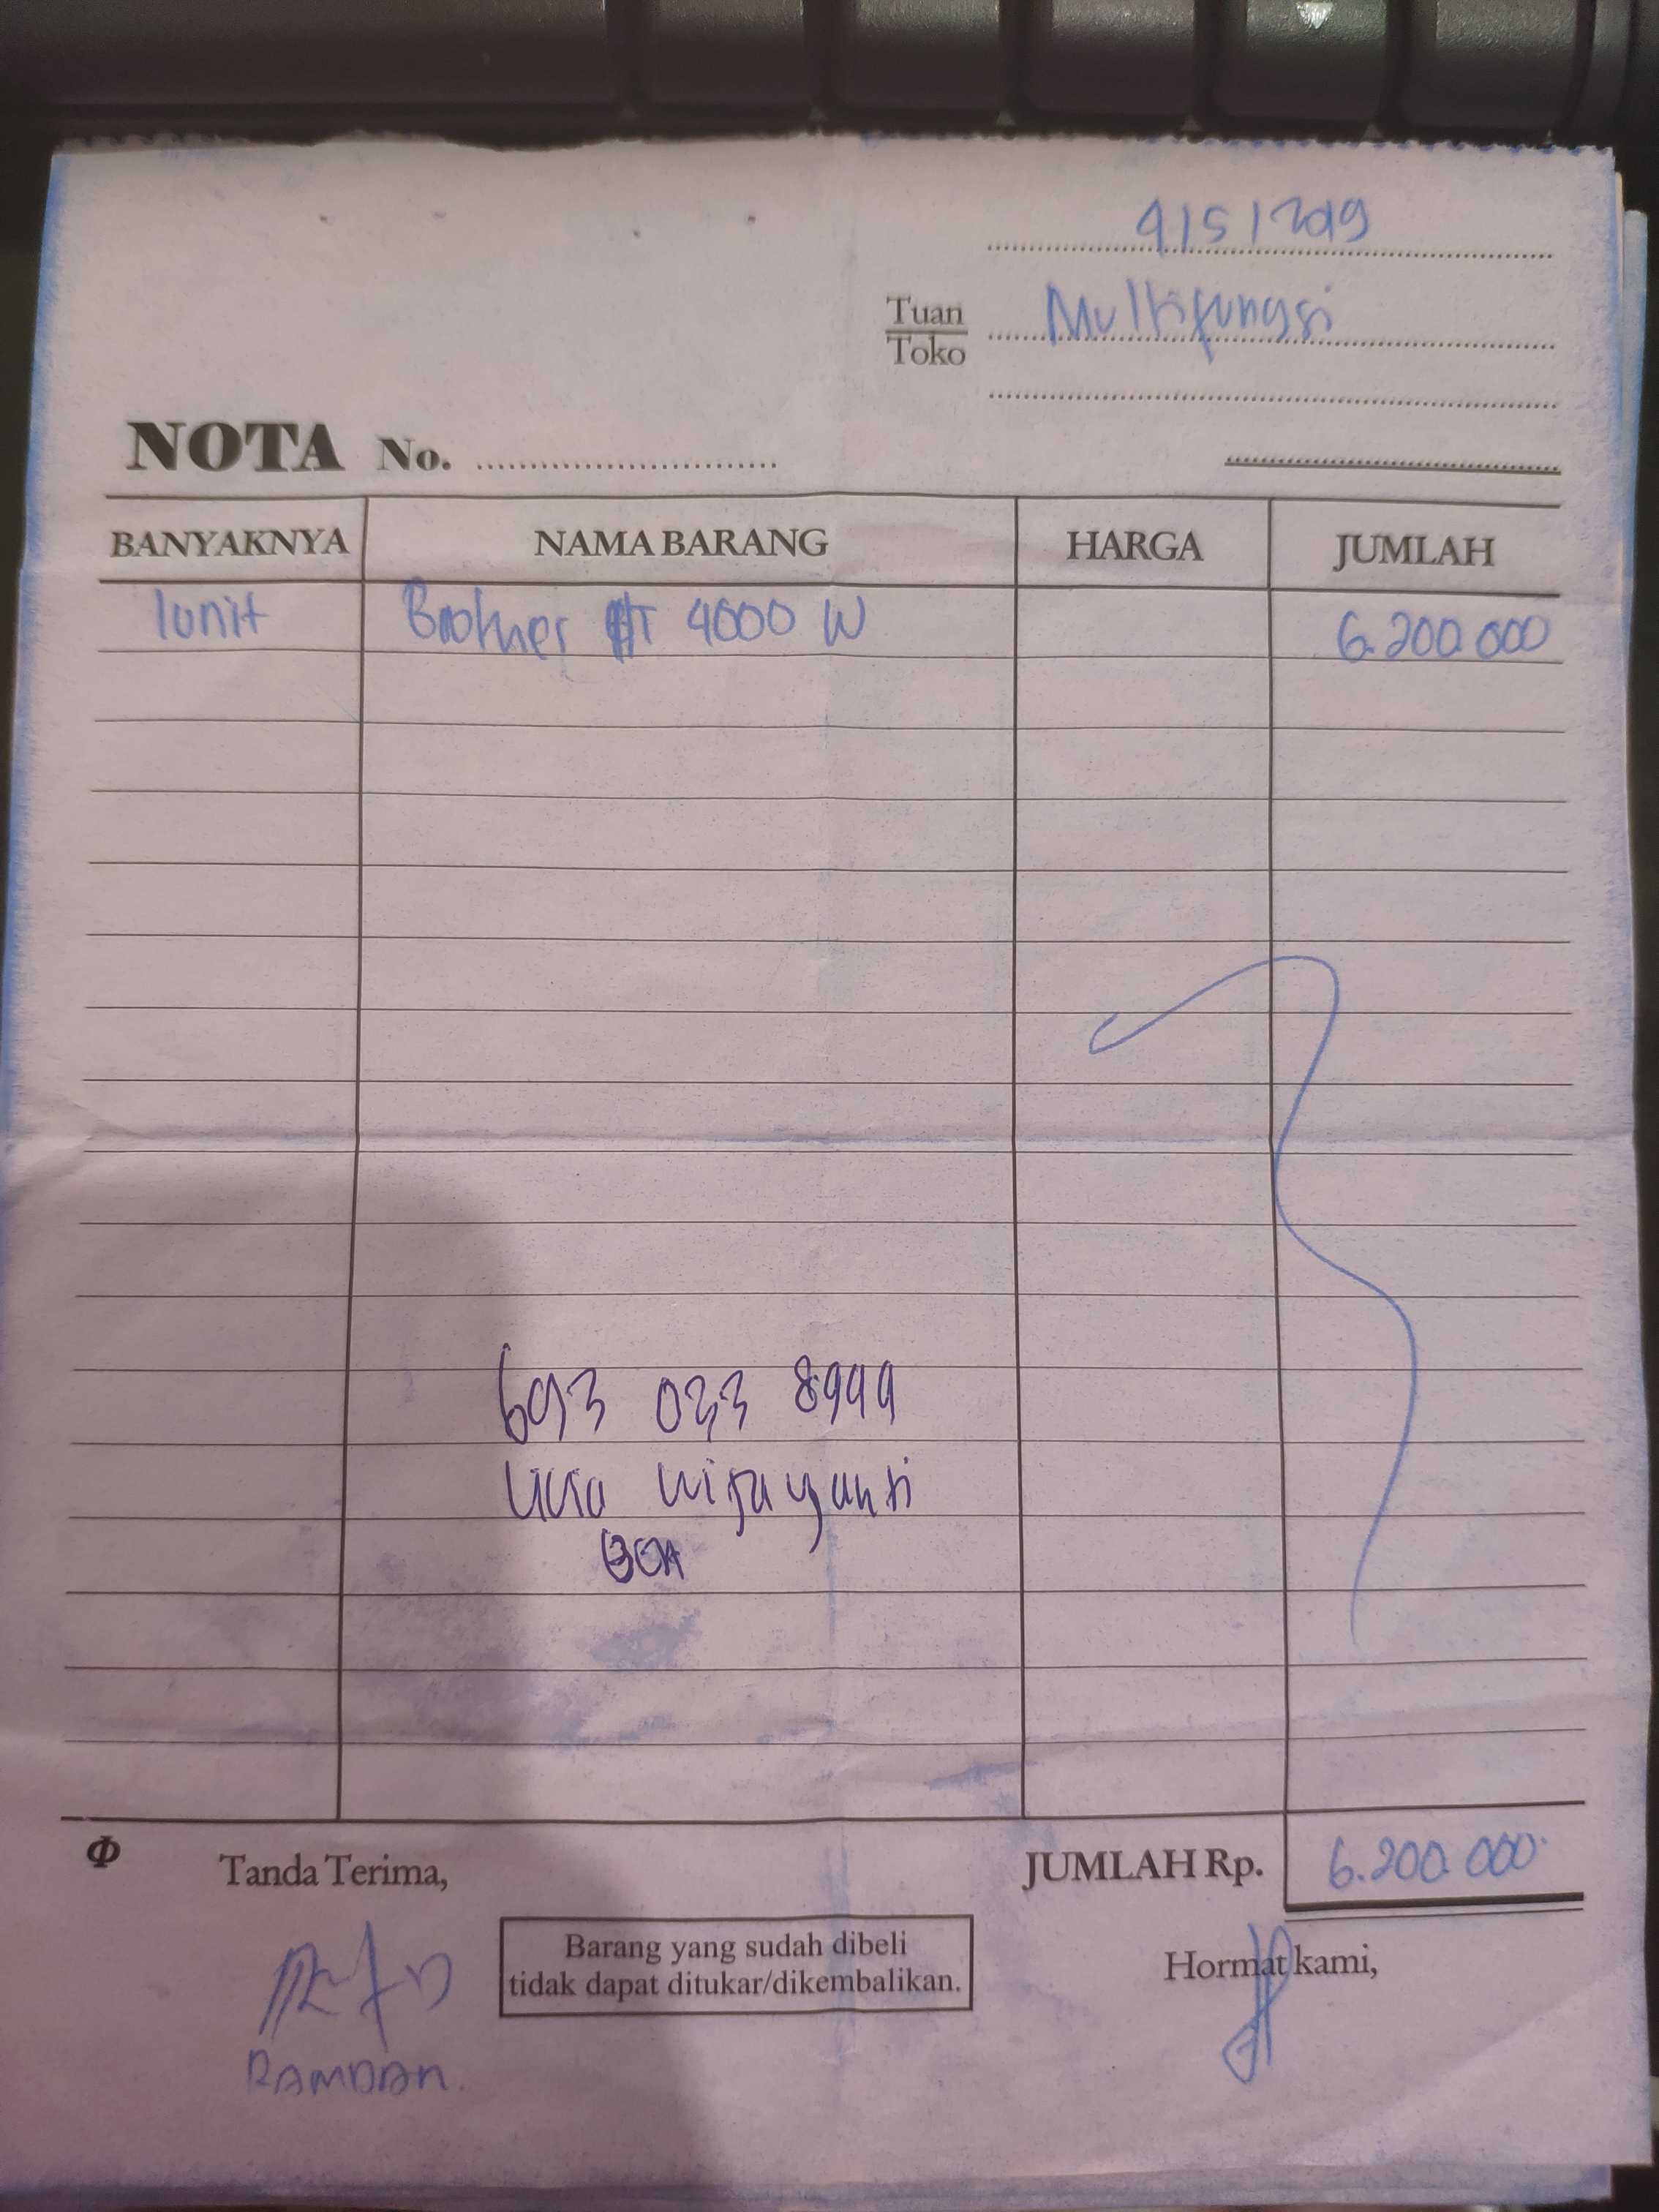 9/5/2019
Tuan
Toko
Multifungsi
NOTA No.
BANYAKNYA NAMA BARANG HARGA JUMLAH
1unit Brother 4000 W 6.200.000
033
Wijayanti
BCA
Φ Tanda Terima, JUMLAH Rp. 6.200.000
Barang yang sudah dibeli
tidak dapat ditukar/dikembalikan.
Hormat kami,
RAMDAN.